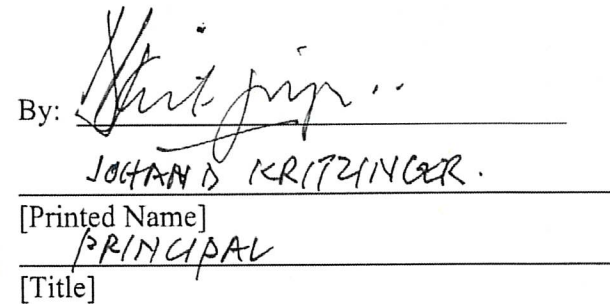 By:
JOHANN D KRITZINGER.
[Printed Name]
PRINCIPAL
[Title]